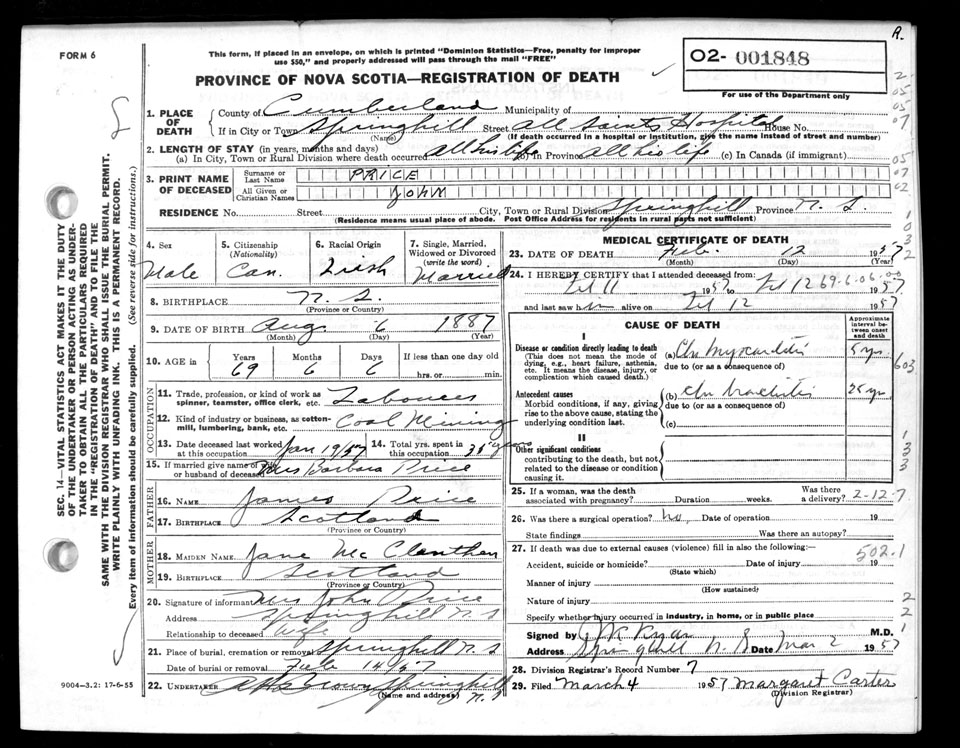 R.
FORM 6
This form, if placed in an envelope, on which is printed "Dominion Statistics—Free, penalty for improper
use $50," and properly addressed will pass through the mail "FREE"
O2- 001848
For use of the Department only
PROVINCE OF NOVA SCOTIA—REGISTRATION OF DEATH
SEC. 14—VITAL STATISTICS ACT MAKES IT THE DUTY
OF THE UNDERTAKER OR PERSON ACTING AS UNDER-
TAKER TO OBTAIN ALL THE PARTICULARS REQUIRED
IN THE "REGISTRATION OF DEATH" AND TO FILE THE
SAME WITH THE DIVISION REGISTRAR WHO SHALL ISSUE THE BURIAL PERMIT.
WRITE PLAINLY WITH UNFADING INK. THIS IS A PERMANENT RECORD.
Every item of information should be carefully supplied. (See reverse side for instructions.)
1. PLACE OF DEATH County of Cumberland Municipality of
If in City or Town Springhill Street All Saints Hospital House No.
(Name) (If death occurred in a hospital or institution, give the name instead of street and number)
2. LENGTH OF STAY (in years, months and days)
(a) In City, Town or Rural Division where death occurred all his life (b) In Province all his life (c) In Canada (if immigrant)
3. PRINT NAME OF DECEASED Surname or Last Name PRICE
All Given or Christian Names JOHN
RESIDENCE No. Street City, Town or Rural Division Springhill Province N. S.
(Residence means usual place of abode. Post Office Address for residents in rural parts not sufficient)
4. Sex Male
5. Citizenship (Nationality) Can.
6. Racial Origin Irish
7. Single, Married, Widowed or Divorced (write the word) Married
8. BIRTHPLACE N. S.
(Province or Country)
9. DATE OF BIRTH Aug. 6 1887
(Month) (Day) (Year)
10. AGE in Years 69 Months 6 Days 6 If less than one day old hrs. or min.
OCCUPATION
11. Trade, profession, or kind of work as spinner, teamster, office clerk, etc. Labourer
12. Kind of industry or business, as cotton-mill, lumbering, bank, etc. Coal Mining
13. Date deceased last worked at this occupation Jan 1957
14. Total yrs. spent in this occupation 35 years
15. If married give name of wife or husband of deceased Mrs Barbara Price
FATHER
16. NAME James Price
17. BIRTHPLACE Scotland
(Province or Country)
MOTHER
18. MAIDEN NAME Jane
19. BIRTHPLACE Scotland
(Province or Country)
20. Signature of informant Mrs John Price
Address Springhill N. S
Relationship to deceased Wife
21. Place of burial, cremation or removal Springhill N. S
Date of burial or removal Feb 14 57
22. UNDERTAKER Brown Springhill N. S
(Name and address)
9004—3.2: 17-6-55
MEDICAL CERTIFICATE OF DEATH
23. DATE OF DEATH Feb. 12 1957
(Month) (Day) (Year)
24. I HEREBY CERTIFY that I attended deceased from:
Feb 11 1957 to Feb 12 1957
69-6-06-00
and last saw him alive on Feb 12 1957
CAUSE OF DEATH
Approximate interval between onset and death
I
Disease or condition directly leading to death
(This does not mean the mode of dying, e.g., heart failure, asthenia, etc. It means the disease, injury, or complication which caused death.)
(a) Chr Myocarditis 5 yrs
due to (or as a consequence of)
Antecedent causes
Morbid conditions, if any, giving rise to the above cause, stating the underlying condition last.
(b) Chr bronchitis 25 yrs
due to (or as a consequence of)
(c)
II
Other significant conditions
contributing to the death, but not related to the disease or condition causing it.
25. If a woman, was the death associated with pregnancy? Duration weeks. Was there a delivery? 2-12-7
26. Was there a surgical operation? no. Date of operation 19
State findings Was there an autopsy?
27. If death was due to external causes (violence) fill in also the following:—
502.1
Accident, suicide or homicide? Date of injury 19
(State which)
Manner of injury
(How sustained)
Nature of injury
Specify whether injury occurred in industry, in home, or in public place
Signed by Ryan M.D.
Address Springhill N. S Date Mar 2 1957
28. Division Registrar's Record Number 7
29. Filed March 4 1957 Margaret Carter
(Division Registrar)